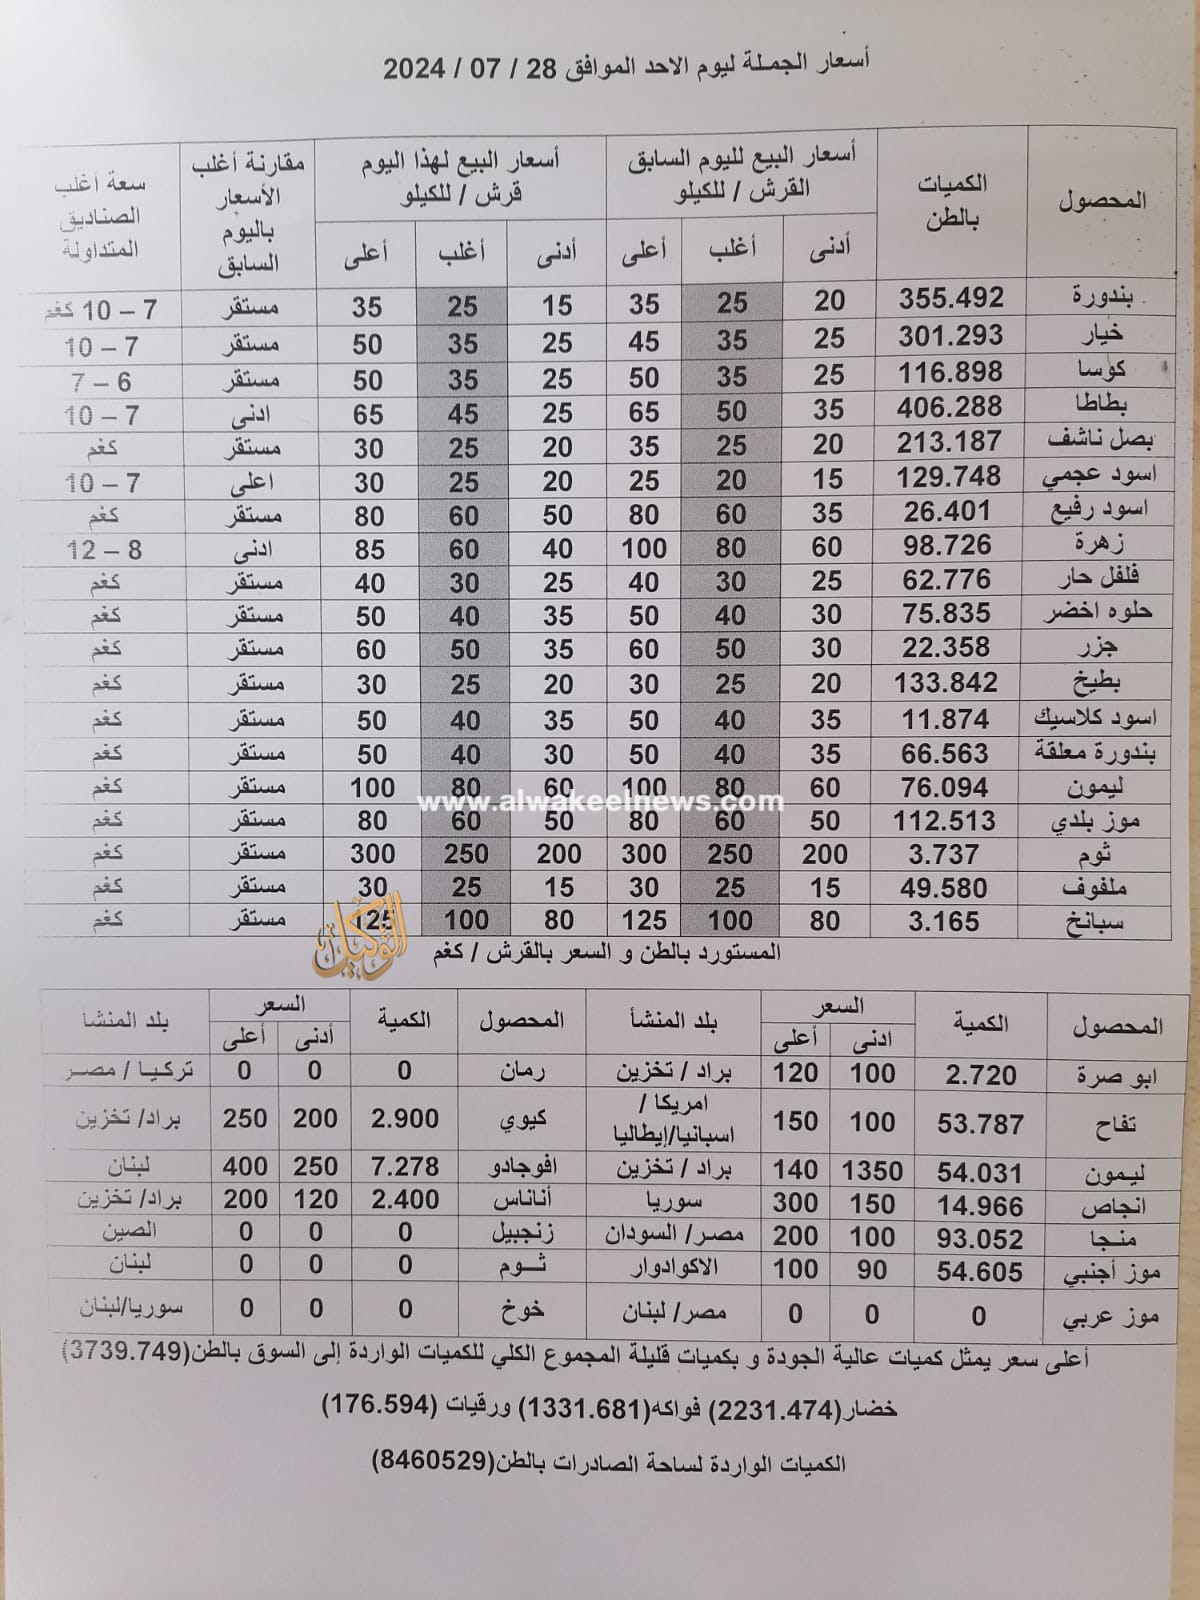 أسعار الجملة ليوم الاحد الموافق 28 / 07 / 2024
المحصول الكميات بالطن أسعار البيع لليوم السابق القرش / للكيلو أسعار البيع لهذا اليوم قرش / للكيلو مقارنة أغلب الأسعار باليوم السابق سعة أغلب الصناديق المتداولة
أدنى أغلب أعلى أدنى أغلب أعلى
بندورة 355.492 20 25 35 15 25 35 مستقر 7 – 10 كغم
خيار 301.293 25 35 45 25 35 50 مستقر 7 – 10
كوسا 116.898 25 35 50 25 35 50 مستقر 6 – 7
بطاطا 406.288 35 50 65 25 45 65 ادنى 7 – 10
بصل ناشف 213.187 20 25 35 20 25 30 مستقر كغم
اسود عجمي 129.748 15 20 25 20 25 30 اعلى 7 – 10
اسود رفيع 26.401 35 60 80 50 60 80 مستقر كغم
زهرة 98.726 60 80 100 40 60 85 ادنى 8 – 12
فلفل حار 62.776 25 30 40 25 30 40 مستقر كغم
حلوه اخضر 75.835 30 40 50 35 40 50 مستقر كغم
جزر 22.358 30 50 60 35 50 60 مستقر كغم
بطيخ 133.842 20 25 30 20 25 30 مستقر كغم
اسود كلاسيك 11.874 35 40 50 35 40 50 مستقر كغم
بندورة معلقة 66.563 35 40 50 30 40 50 مستقر كغم
ليمون 76.094 60 80 100 60 80 100 مستقر كغم
www.alwakeelnews.com
موز بلدي 112.513 50 60 80 50 60 80 مستقر كغم
ثوم 3.737 200 250 300 200 250 300 مستقر كغم
ملفوف 49.580 15 25 30 15 25 30 مستقر كغم
سبانخ 3.165 80 100 125 80 100 125 مستقر كغم
الوكيل
المستورد بالطن و السعر بالقرش / كغم
المحصول الكمية السعر بلد المنشأ المحصول الكمية السعر بلد المنشأ
ادنى أعلى أدنى أعلى
ابو صرة 2.720 100 120 براد / تخزين رمان 0 0 0 تركيا / مصر
تفاح 53.787 100 150 امريكا / اسبانيا/إيطاليا كيوي 2.900 200 250 براد/ تخزين
ليمون 54.031 1350 140 براد / تخزين افوجادو 7.278 250 400 لبنان
انجاص 14.966 150 300 سوريا أناناس 2.400 120 200 براد/ تخزين
منجا 93.052 100 200 مصر/ السودان زنجبيل 0 0 0 الصين
موز أجنبي 54.605 90 100 الاكوادوار ثوم 0 0 0 لبنان
موز عربي 0 0 0 مصر/ لبنان خوخ 0 0 0 سوريا/لبنان
أعلى سعر يمثل كميات عالية الجودة و بكميات قليلة المجموع الكلي للكميات الواردة إلى السوق بالطن(3739.749)
خضار(2231.474) فواكه(1331.681) ورقيات (176.594)
الكميات الواردة لساحة الصادرات بالطن(8460529)